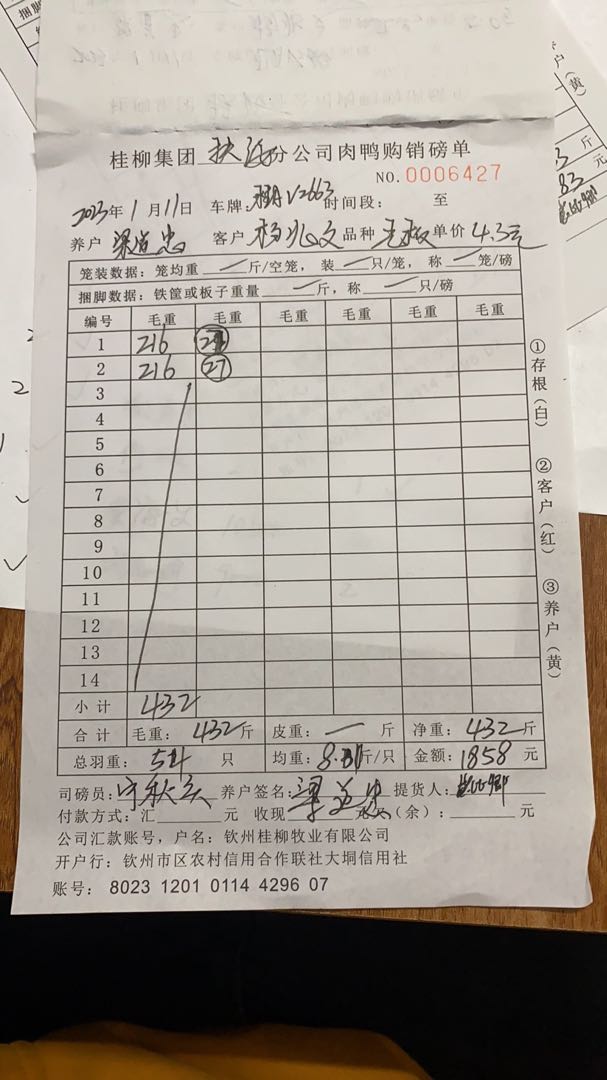 桂柳集团 扶 分公司肉鸭购销磅单
NO.0006427
2023年1月11日 车牌: V2663 时间段: 至
养户 梁 忠 客户 杨兆文 品种 毛 单价 4.3元
笼装数据: 笼均重 — 斤/空笼, 装 — 只/笼, 称 — 笼/磅
捆脚数据: 铁筐或板子重量 — 斤, 称 — 只/磅
编号 毛重 毛重 毛重 毛重 毛重 毛重
1 216
2 216 27
3
4
5
6
7
8
9
10
11
12
13
14
小计 432
合计 毛重: 432斤 皮重: — 斤 净重: 432斤
总羽重: 54 只 均重: 8. 斤/只 金额: 1858 元
司磅员: 秋 养户签名: 梁 忠 提货人:
付款方式: 汇 元 收现 (余): 元
公司汇款账号, 户名: 钦州桂柳牧业有限公司
开户行: 钦州市区农村信用合作联社大垌信用社
账号: 8023 1201 0114 4296 07
①存根(白)
②客户(红)
③养户(黄)